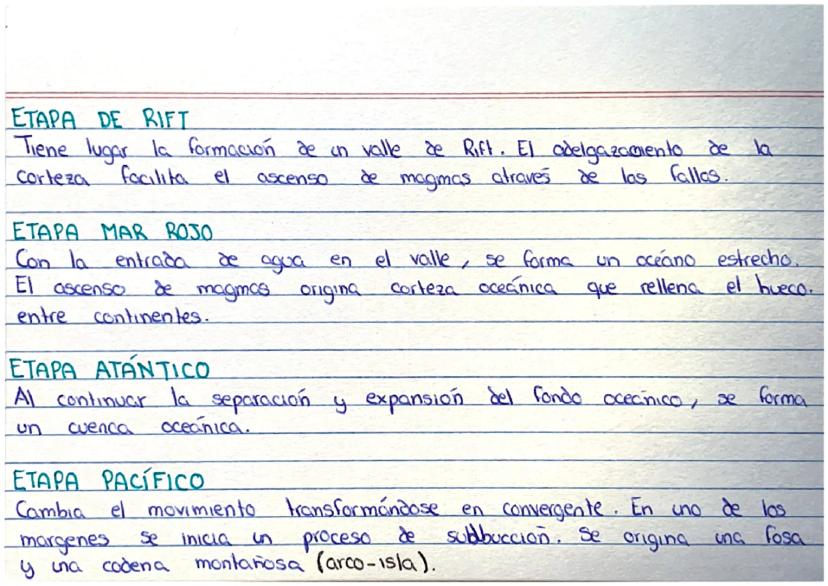 ETAPA DE RIFT
Tiene lugar la formación de un valle de Rift. El adelgazamiento de la
corteza facilita el ascenso de magmas através de las fallas.
ETAPA MAR ROJO
Con la entrada de agua en el valle, se forma un océano estrecho.
El ascenso de magmas origina corteza oceánica que rellena el hueco.
entre continentes.
ETAPA ATÁNTICO
Al continuar la separación y expansión del fondo oceánico, se forma
un cuenca oceánica.
ETAPA PACÍFICO
Cambia el movimiento transformándose en convergente. En uno de los
margenes se inicia un proceso de subbucción. Se origina una fosa
y una cadena montañosa (arco-isla).